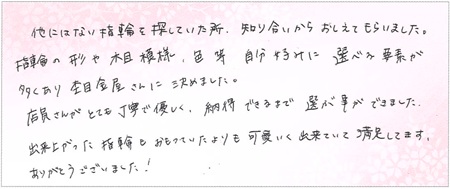 他にはない指輪を探していた所、知り合いからおしえてもらいました。
指輪の形や木目模様、色等 自分好みに 選べる要素が
多くあり 杢目金屋さんに決めました。
店員さんがとても丁寧で優しく、納得できるまで 選ぶ事ができました。
出来上がった指輪もおもっていたよりも可愛いく出来ていて満足してます。
ありがとうございました!